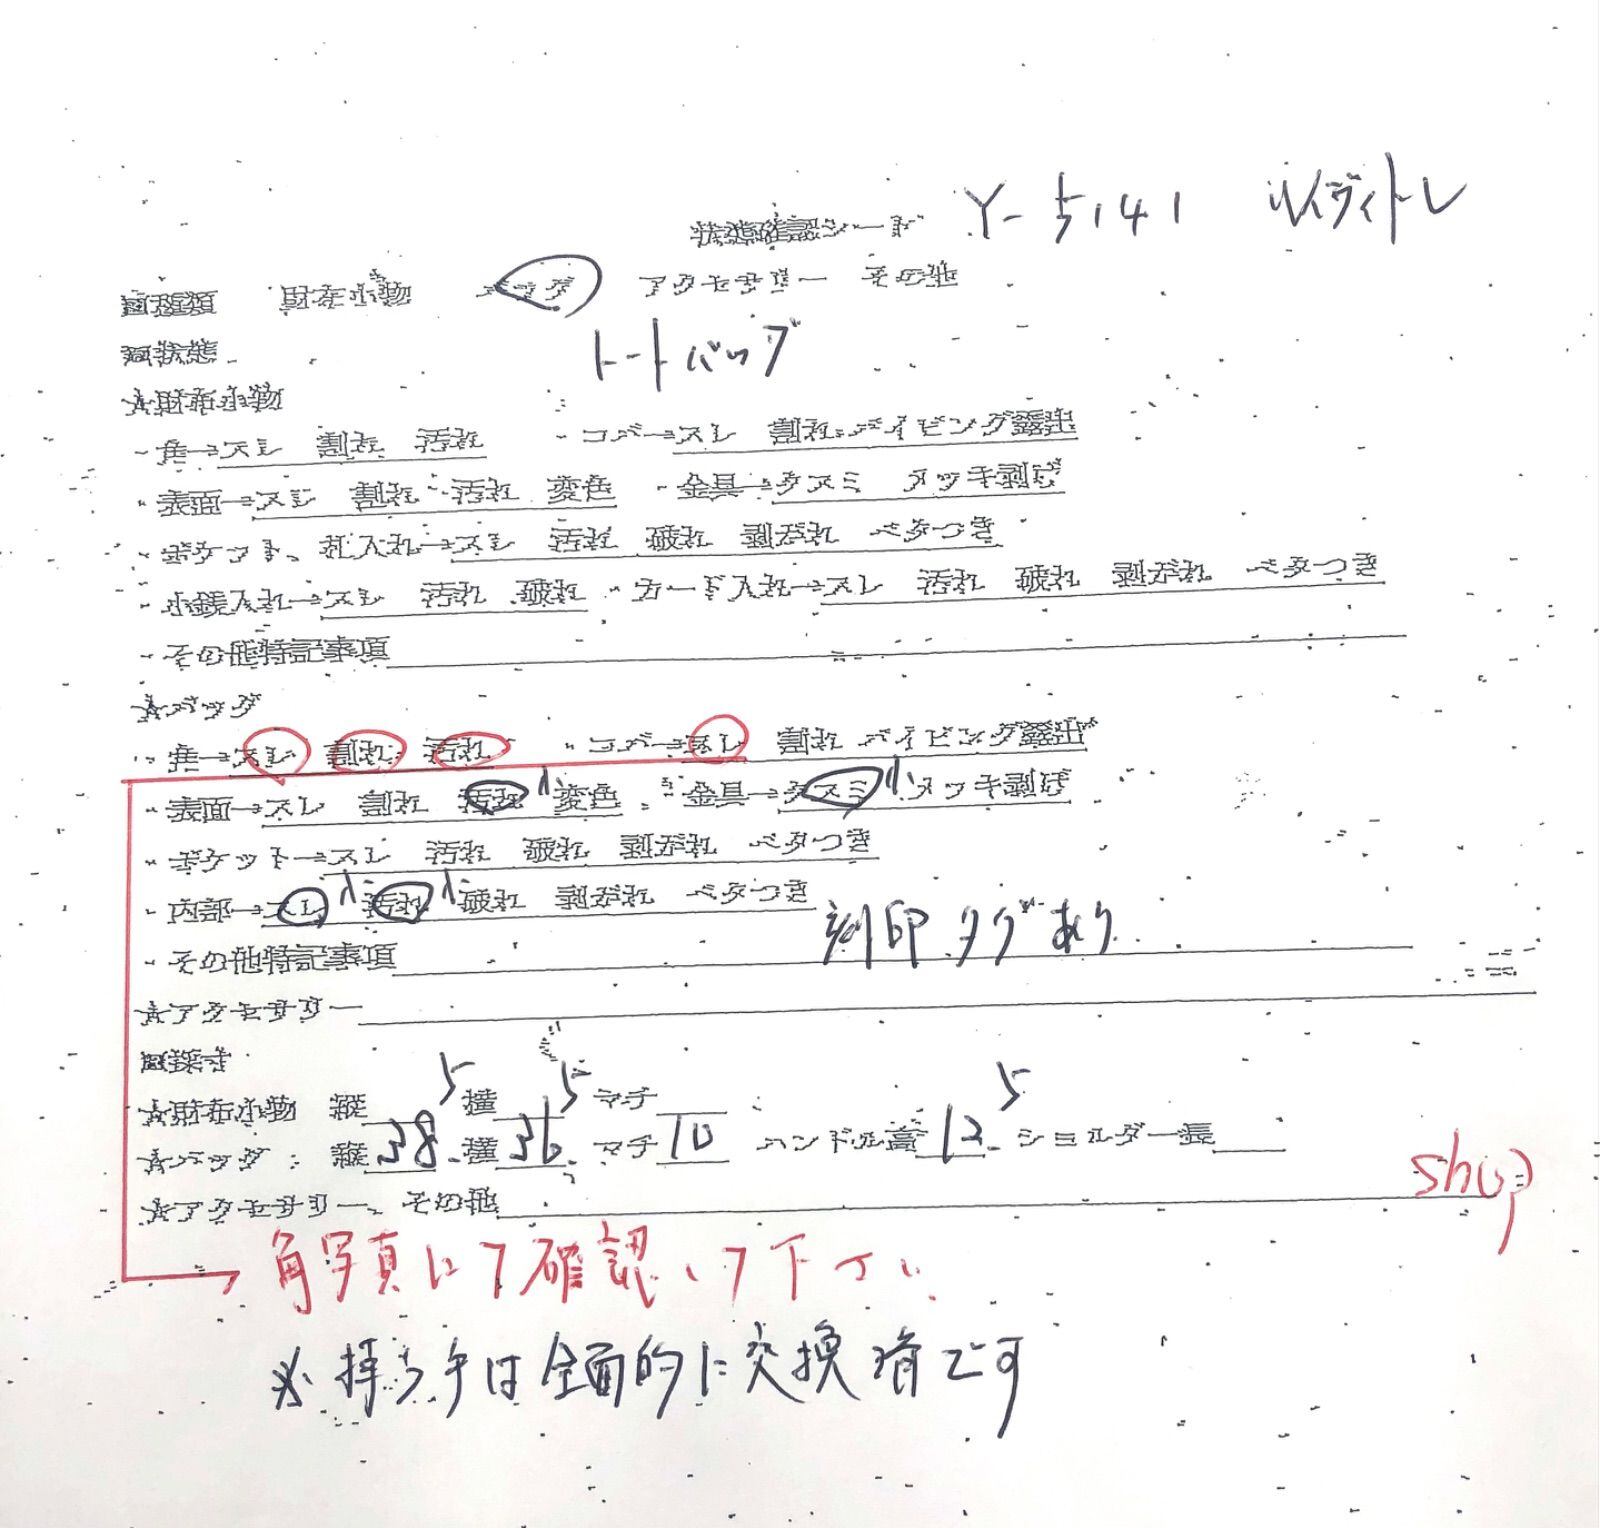 状態確認シート Y-5141 ルイヴィトレ
□種類 財布小物 バッグ アクセサリー その他
□状態 トートバッグ
☆財布小物
・角→スレ 割れ 汚れ ・コバ→スレ 割れ パイピング露出
・表面→スレ 割れ 汚れ 変色 ・金具→クスミ メッキ剥げ
・ポケット、札入れ→スレ 汚れ 破れ 剥がれ ベタつき
・小銭入れ→スレ 汚れ 破れ ・カード入れ→スレ 汚れ 破れ 剥がれ ベタつき
・その他特記事項
☆バッグ
・角→スレ 割れ 汚れ ・コバ→スレ 割れ パイピング露出
・表面→スレ 割れ 汚れ 小 変色 ・金具→クスミ 小 メッキ剥げ
・ポケット→スレ 汚れ 破れ 剥がれ ベタつき
・内部→スレ 小 汚れ 小 破れ 剥がれ ベタつき
・その他特記事項 刻印 タグあり
☆アクセサリー
□採寸
☆財布小物 縦 横 マチ
☆バッグ : 縦38.5 横36.5 マチ10 ハンドル高12.5 ショルダー長
☆アクセサリー、その他
shop
角写真にて確認して下さい。
※持ち手は全面的に交換済です